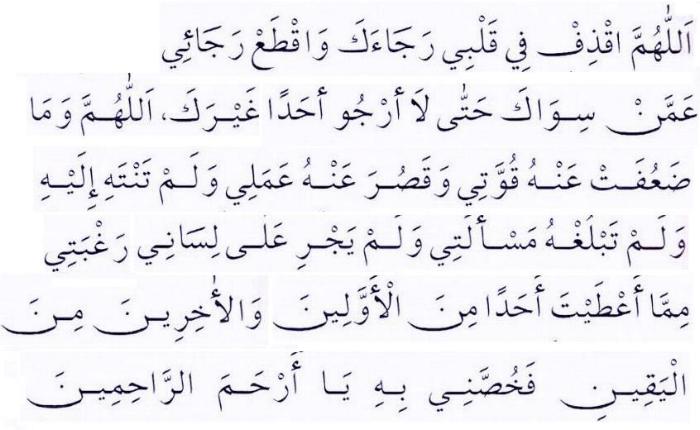 اَللّٰهُمَّ اقْذِفْ فِي قَلْبِي رَجَاءَكَ وَاقْطَعْ رَجَائِي
عَمَّنْ سِوَاكَ حَتّٰى لَا أَرْجُو أَحَدًا غَيْرَكَ، اَللّٰهُمَّ وَمَا
ضَعُفَتْ عَنْهُ قُوَّتِي وَقَصُرَ عَنْهُ عَمَلِي وَلَمْ تَنْتَهِ إِلَيْهِ
رَغْبَتِي وَلَمْ تَبْلُغْهُ مَسْأَلَتِي وَلَمْ يَجْرِ عَلَى لِسَانِي
مِمَّا أَعْطَيْتَ أَحَدًا مِنَ الْأَوَّلِينَ وَالْأٰخِرِينَ مِنَ
الْيَقِينِ فَخُصَّنِي بِهِ يَا أَرْحَمَ الرَّاحِمِينَ